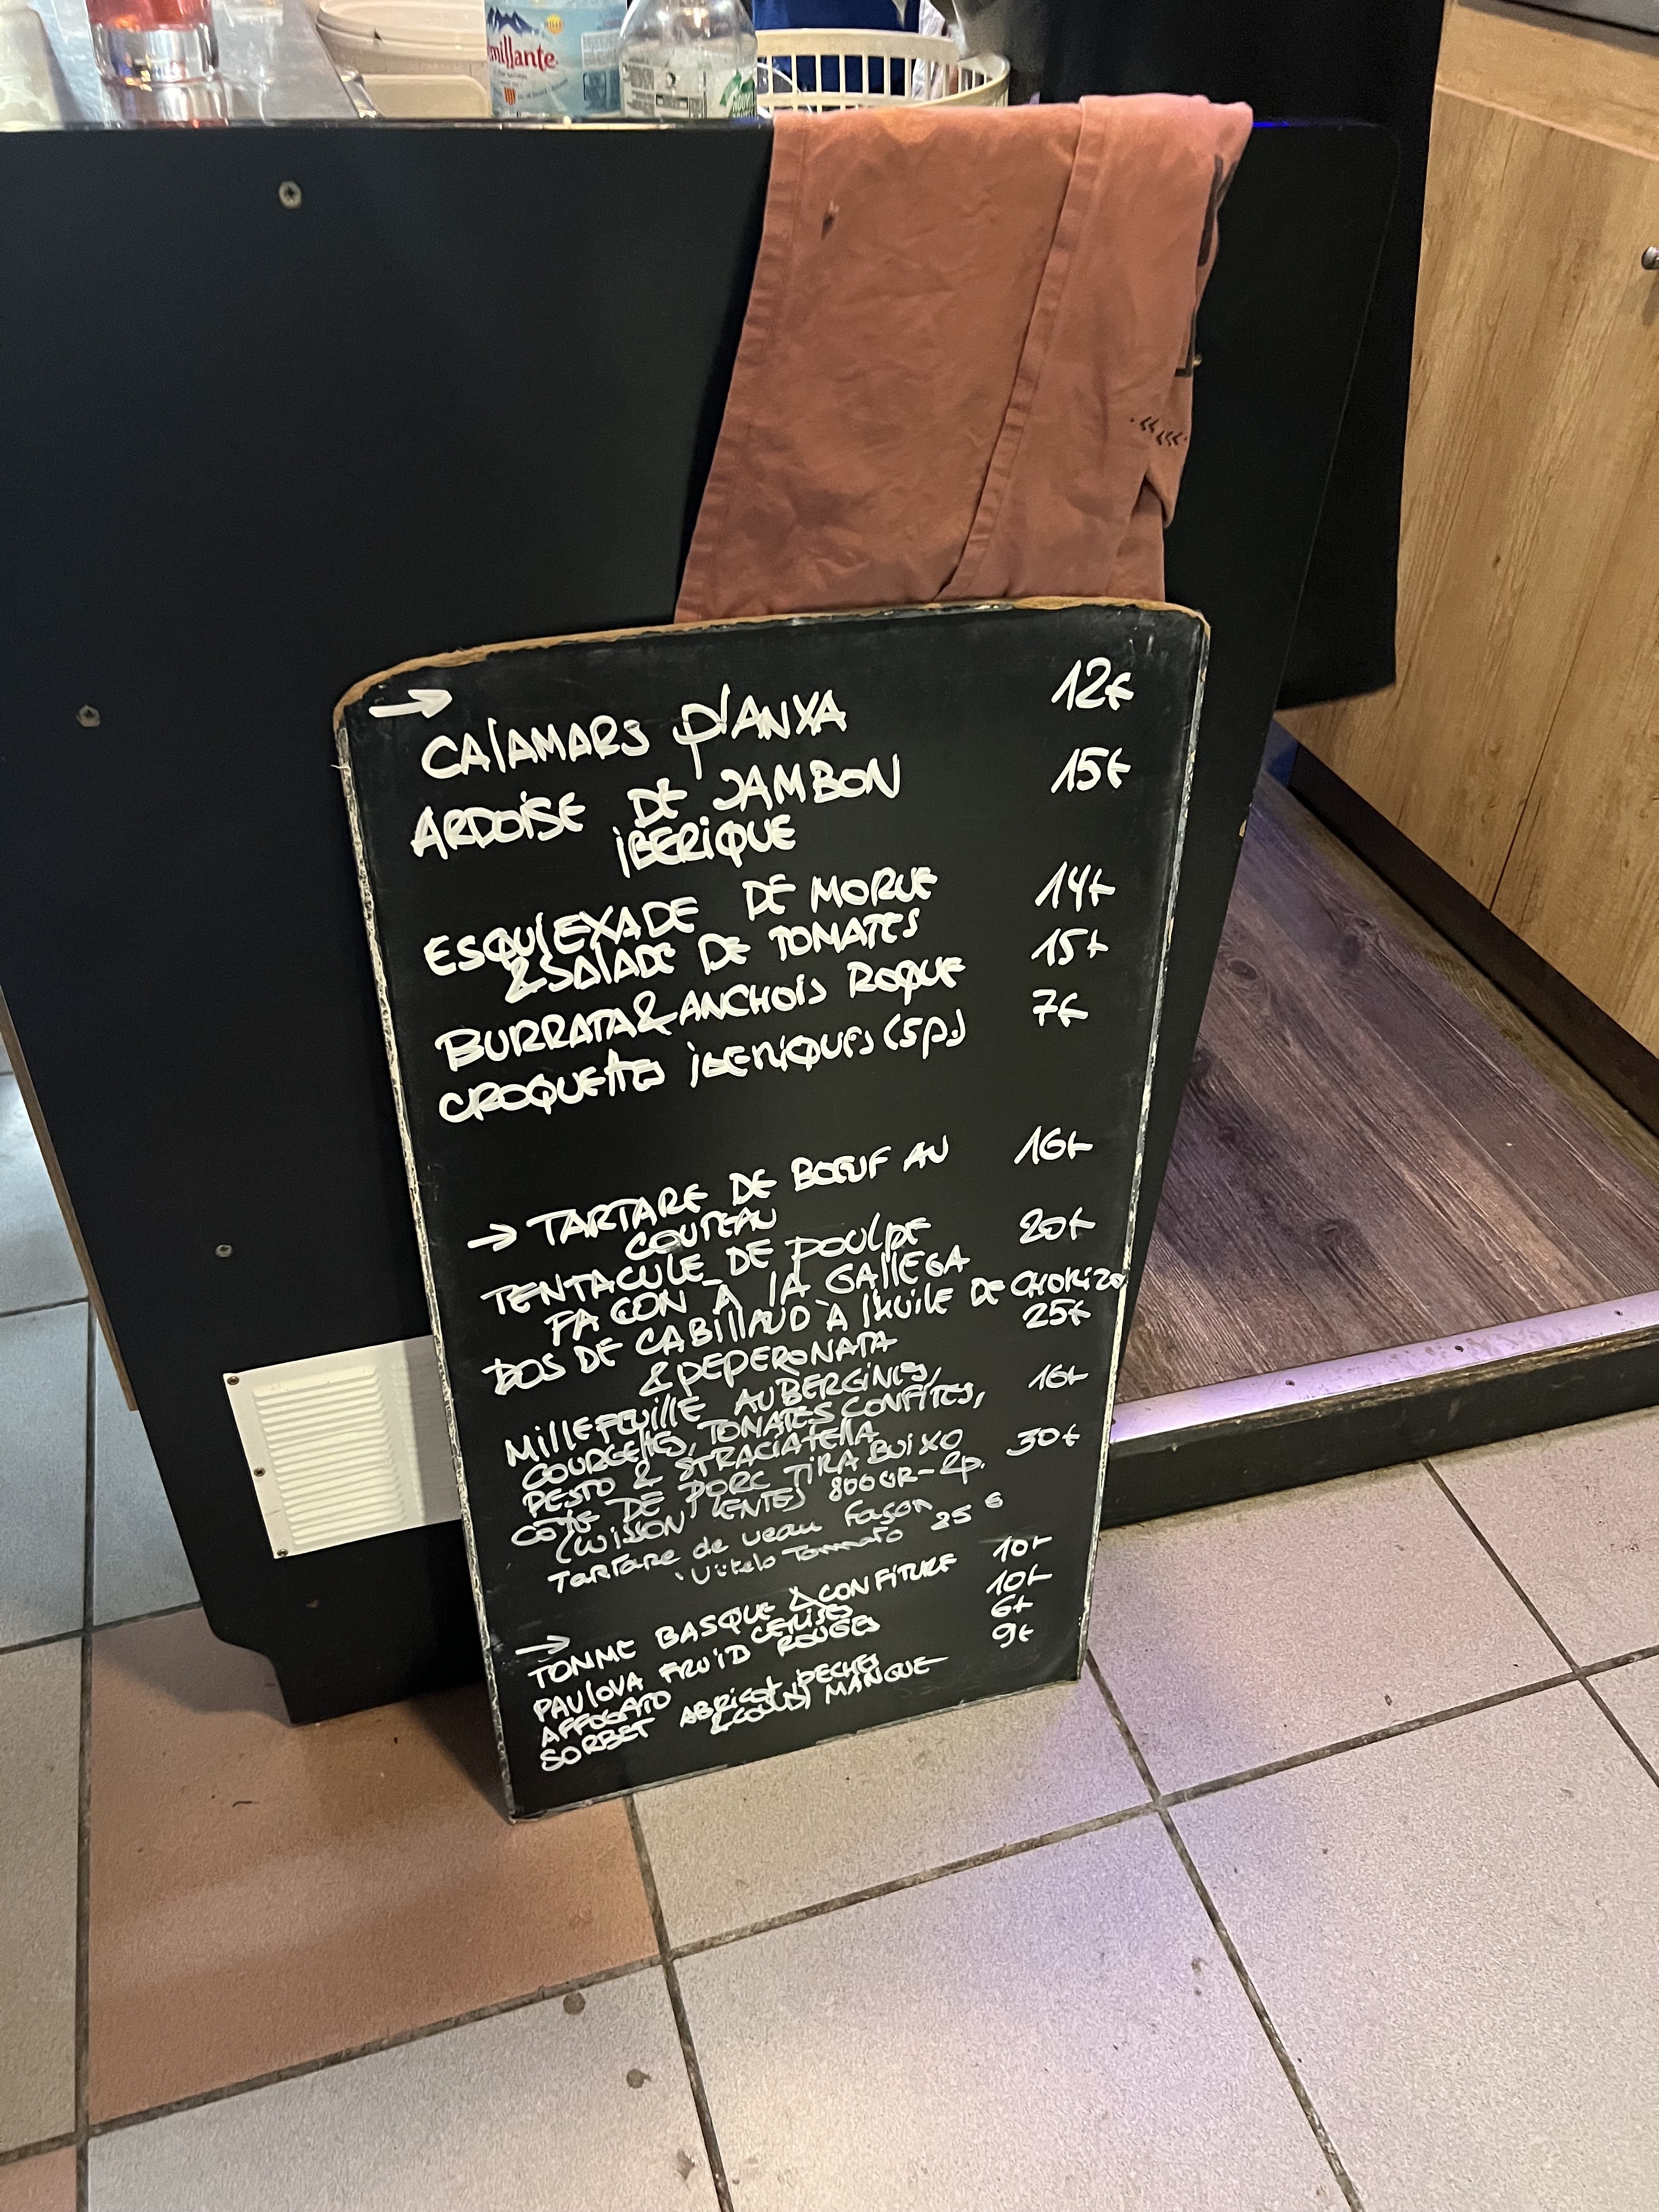 millante
12€
CALAMARS PLANXA
15€
ARDOISE DE JAMBON
IBERIQUE
ESQUEIXADE DE MORUE 14€
& SALADE DE TOMATES
BURRATA & ANCHOIS ROQUE 15€
CROQUETTES IBERIQUES (5p.) 7€
→ TARTARE DE BOEUF AU 16€
COUTEAU
TENTACULE DE POULPE 20€
FACON A LA GALLEGA
DOS DE CABILLAUD À L'HUILE DE CHORIZO
& PEPERONATA 25€
MILLEFEUILLE AUBERGINES, 16€
COURGETTES, TOMATES CONFITES,
PESTO & STRACIATELLA
COTE DE PORC TIRABUIXO 30€
(CUISSON LENTE) 800GR-2p.
Tartare de veau façon
Vitelo Tonnato 25€
→
TOMME BASQUE & CONFITURE 10€
CERISES
PAVLOVA FRUITS ROUGES 10€
AFFOGATO 6€
SORBET ABRICOT, PECHES 9€
& COULIS MANGUE